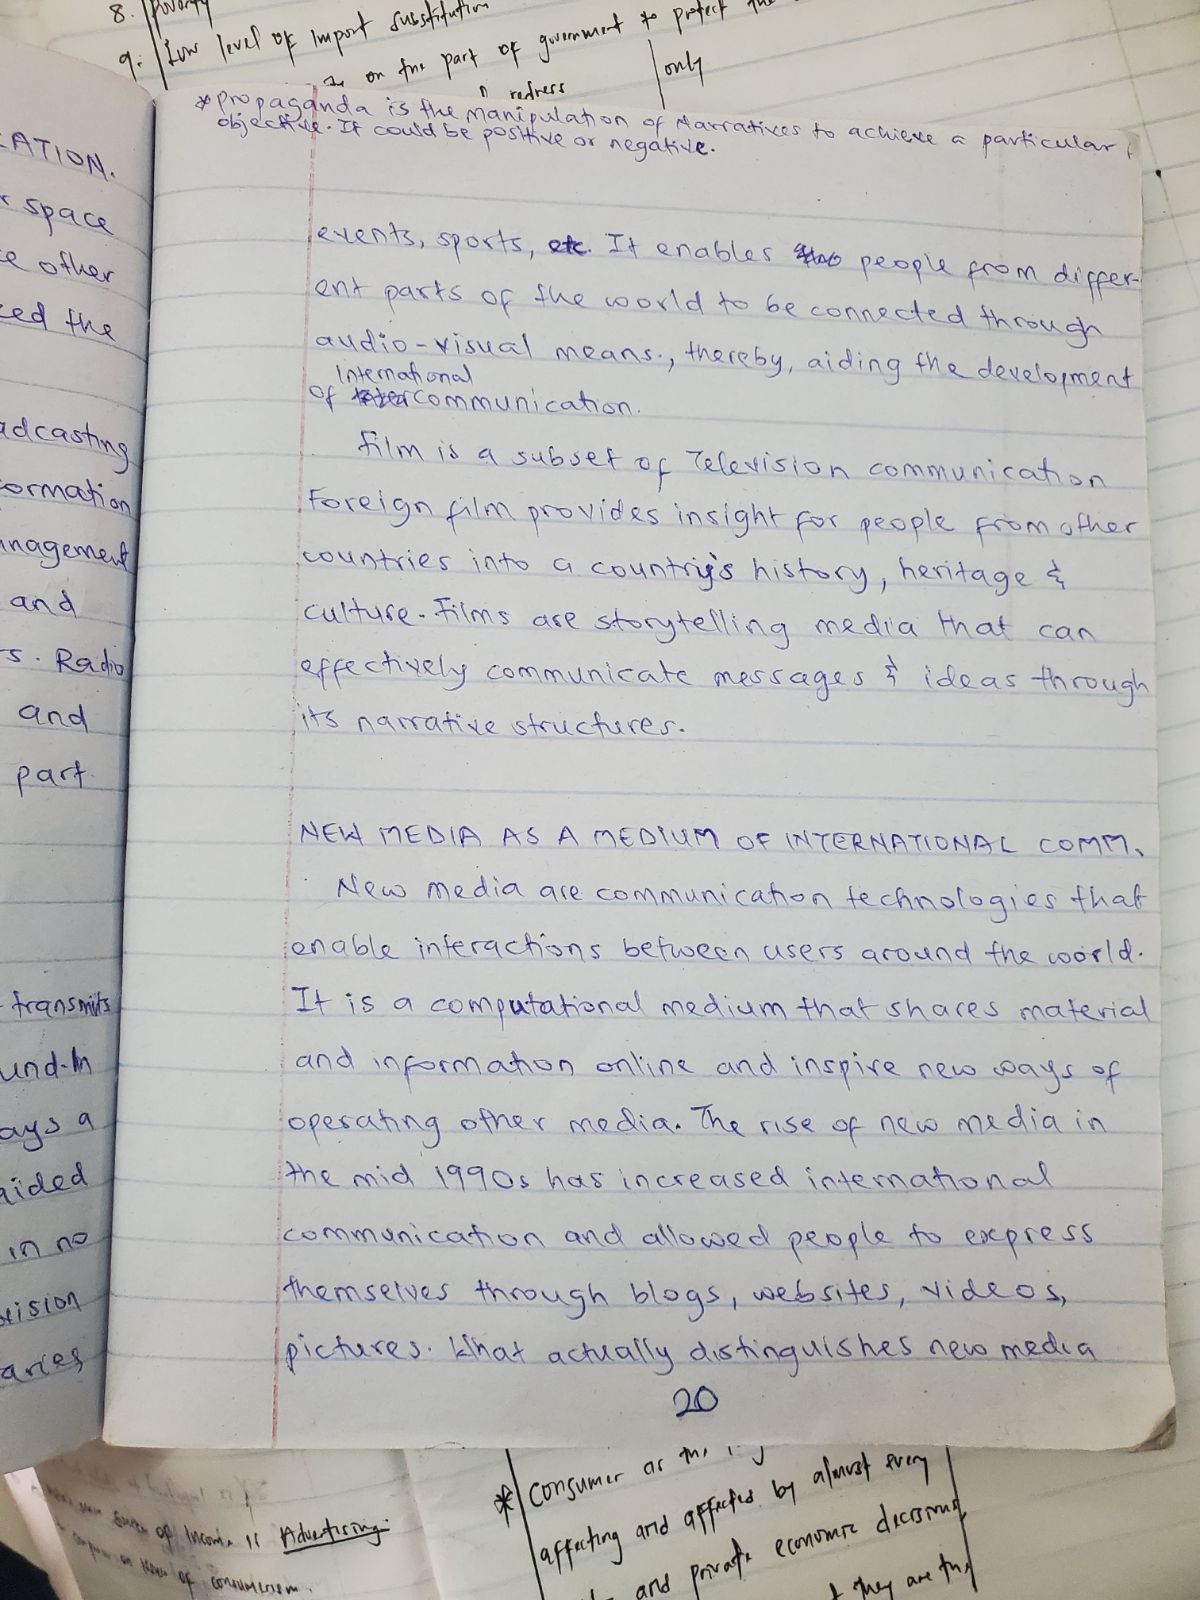 8. Poverty
9. Low level of import substitution
on the part of government to protect the
only
redress
CATION.
space
other
ced the
adcasting
ormation
anagement
and
s. Radio
and
part
transmits
und. In
ays a
aided
in no
vision
aries
* Propaganda is the manipulation of Narratives to achieve a particular
objective. It could be positive or negative.
events, sports, etc. It enables people from differ-
ent parts of the world to be connected through
audio-visual means., thereby, aiding the development
International
of communication.
Film is a subset of Television communication
Foreign film provides insight for people from other
countries into a country's history, heritage &
culture. Films are storytelling media that can
effectively communicate messages & ideas through
its narrative structures.
NEW MEDIA AS A MEDIUM OF INTERNATIONAL COMM.
New media are communication technologies that
enable interactions between users around the world.
It is a computational medium that shares material
and information online and inspire new ways of
operating other media. The rise of new media in
the mid 1990s has increased international
communication and allowed people to express
themselves through blogs, websites, videos,
pictures. What actually distinguishes new media
20
* consumer as the
affecting and affected by almost every
and private economic decisions
they are the
of Income is Advertising
of consumerism.